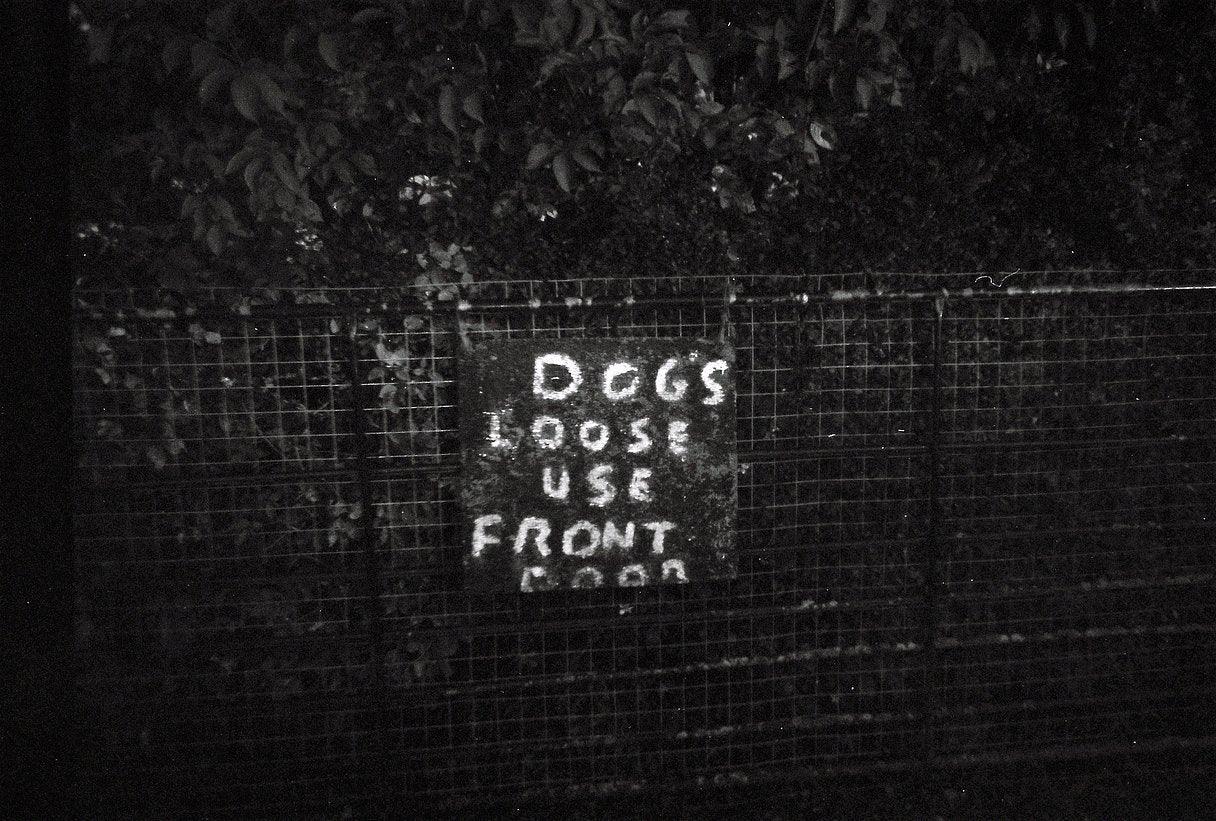 DOGS
LOOSE
USE
FRONT
DOOR